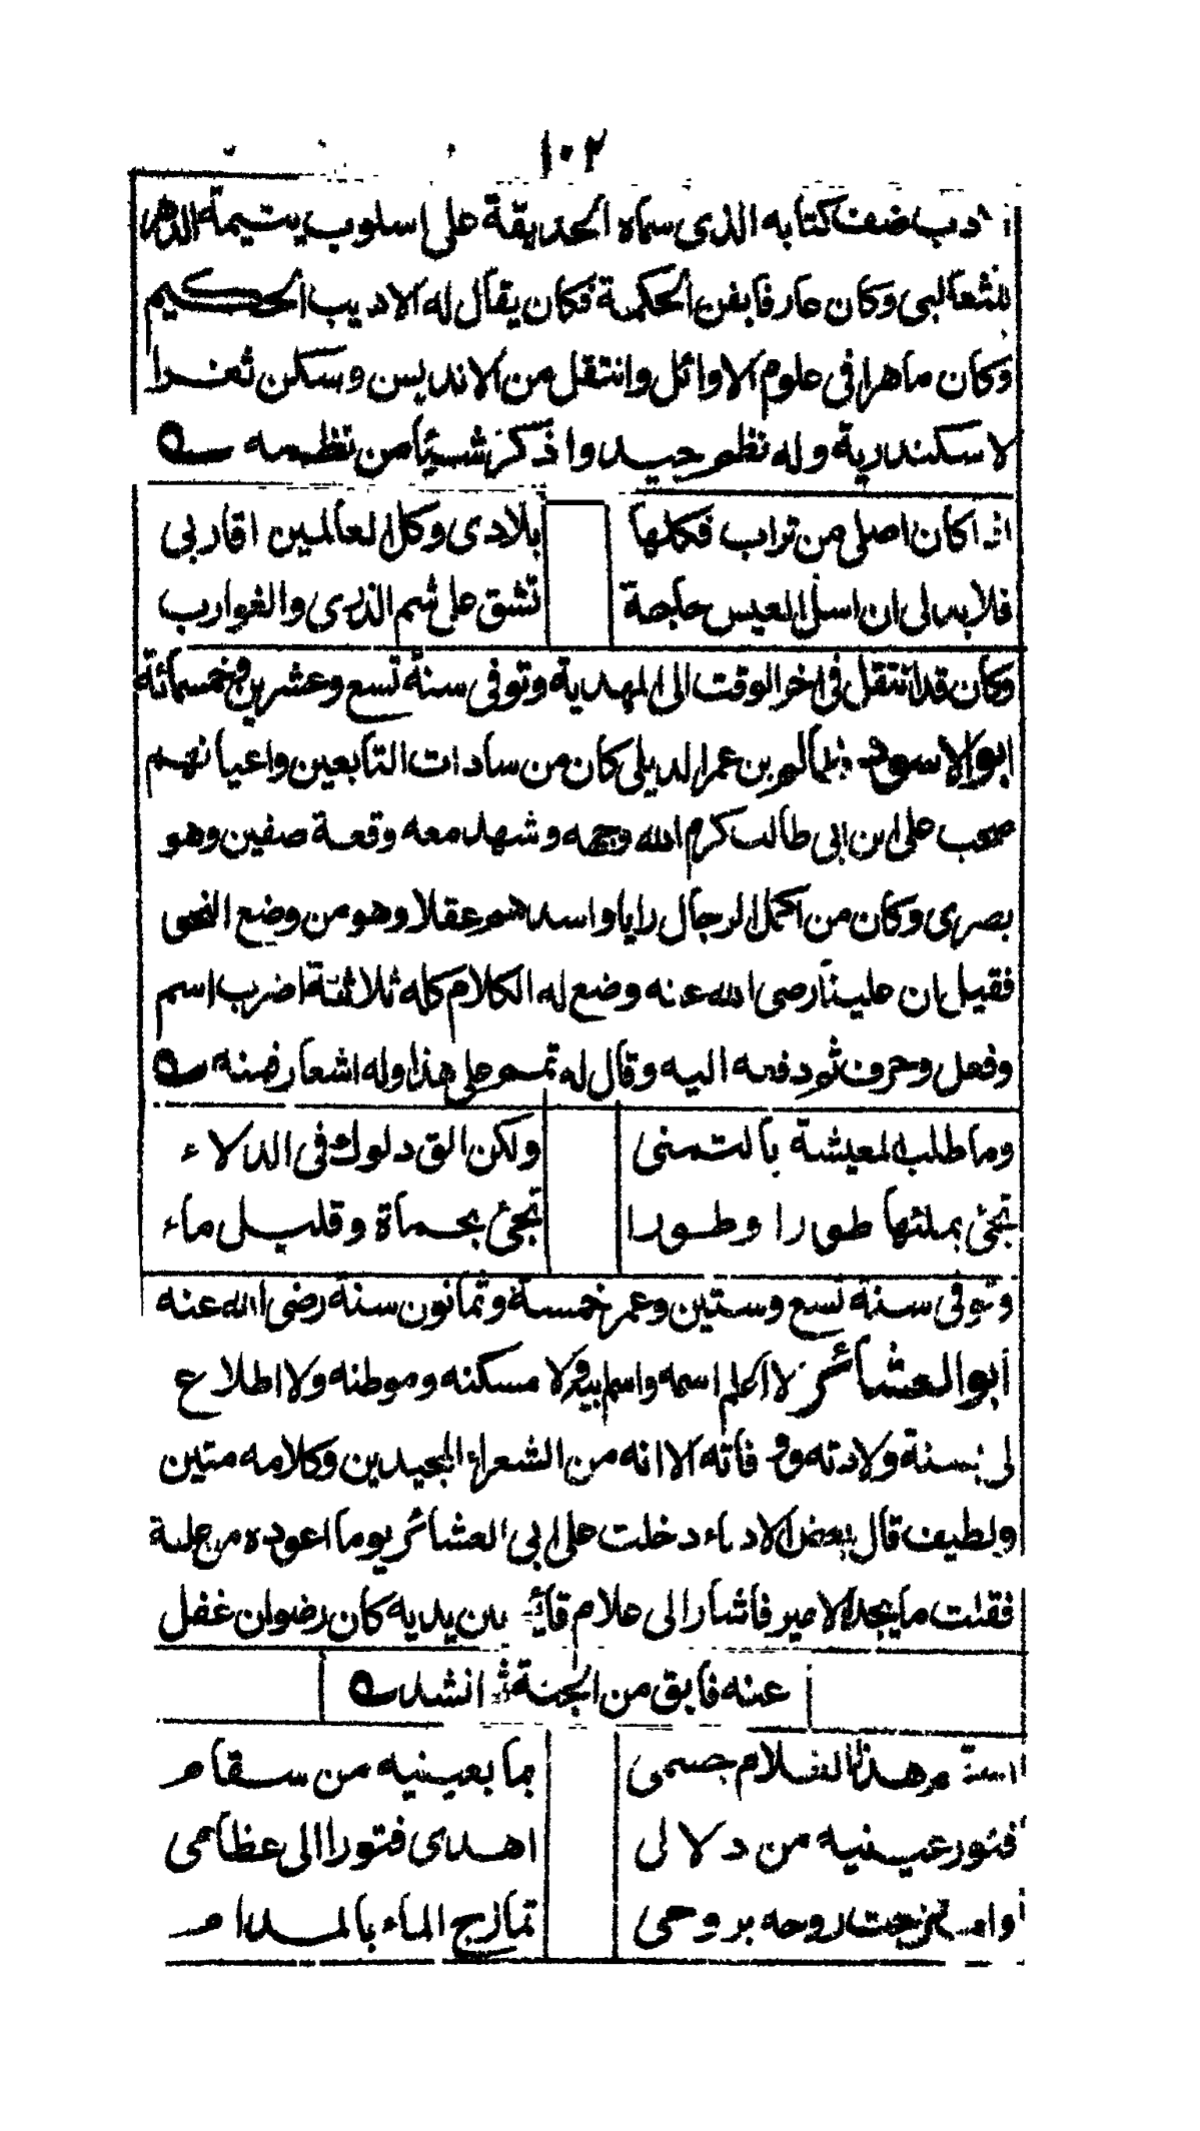 ١٠٢
دب ضف كتابه الذى سماه الحديقة على اسلوب يتيمة الدهر
للثعالبى وكان عارفا بفن الحكمة فكان يقال له الاديب الحكيم
وكان ماهرا فى علوم الاوائل وانتقل من الاندلس وسكن ثغرا
لاسكندرية وله نظم جيد واذكر شيئا من نظمه
اذا كان اصلى من تراب فكلها بلادى وكل العالمين اقاربى
فلا بد لى ان اسئل العيس حاجة تشق على شم الذرى والغوارب
وكان قد انتقل فى اخر الوقت الى المهدية وتوفى سنة تسع وعشرين وخمسمائة
ابو الاسود ظالم بن عمر الديلى كان من سادات التابعين واعيانهم
صحب على ابن ابى طالب كرم الله وجهه وشهد معه وقعة صفين وهو
بصرى وكان من اكمل الرجال رايا واسدهم عقلا وهو من وضع النحو
فقيل ان علينا رضى الله عنه وضع له الكلام كله ثلاثة اضرب اسم
وفعل وحرف ثم دفعه اليه وقال له تمم على هذا وله اشعار فمنه
وما طلب المعيشة بالتمنى ولكن الق دلوك فى الدلاء
تجئ بملئها طورا وطورا تجئ بحماة وقليل ماء
وتوفى سنة تسع وستين وعمر خمسة وثمانون سنة رضى الله عنه
ابو العشائر لا اعلم اسمه واسم ابيه ولا مسكنه وموطنه ولا اطلاع
لى بسنة ولادته ووفاته الا انه من الشعراء المجيدين وكلامه متين
ولطيف قال بعض الادباء دخلت على ابى العشائر يوما اعوده من علة
فقلت ما يجد الامير فاشار الى غلام قائم بين يديه كان رضوان غفل
عنه فابق من الجنة ثم انشد
هذا الغلام جسمى بما بعينيه من سقام
فتور عينيه من دلال اهدى فتورا الى عظامى
وامتزجت روحه بروحى تمازج الماء بالمدام